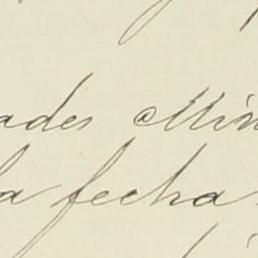 ades Min
la fecha